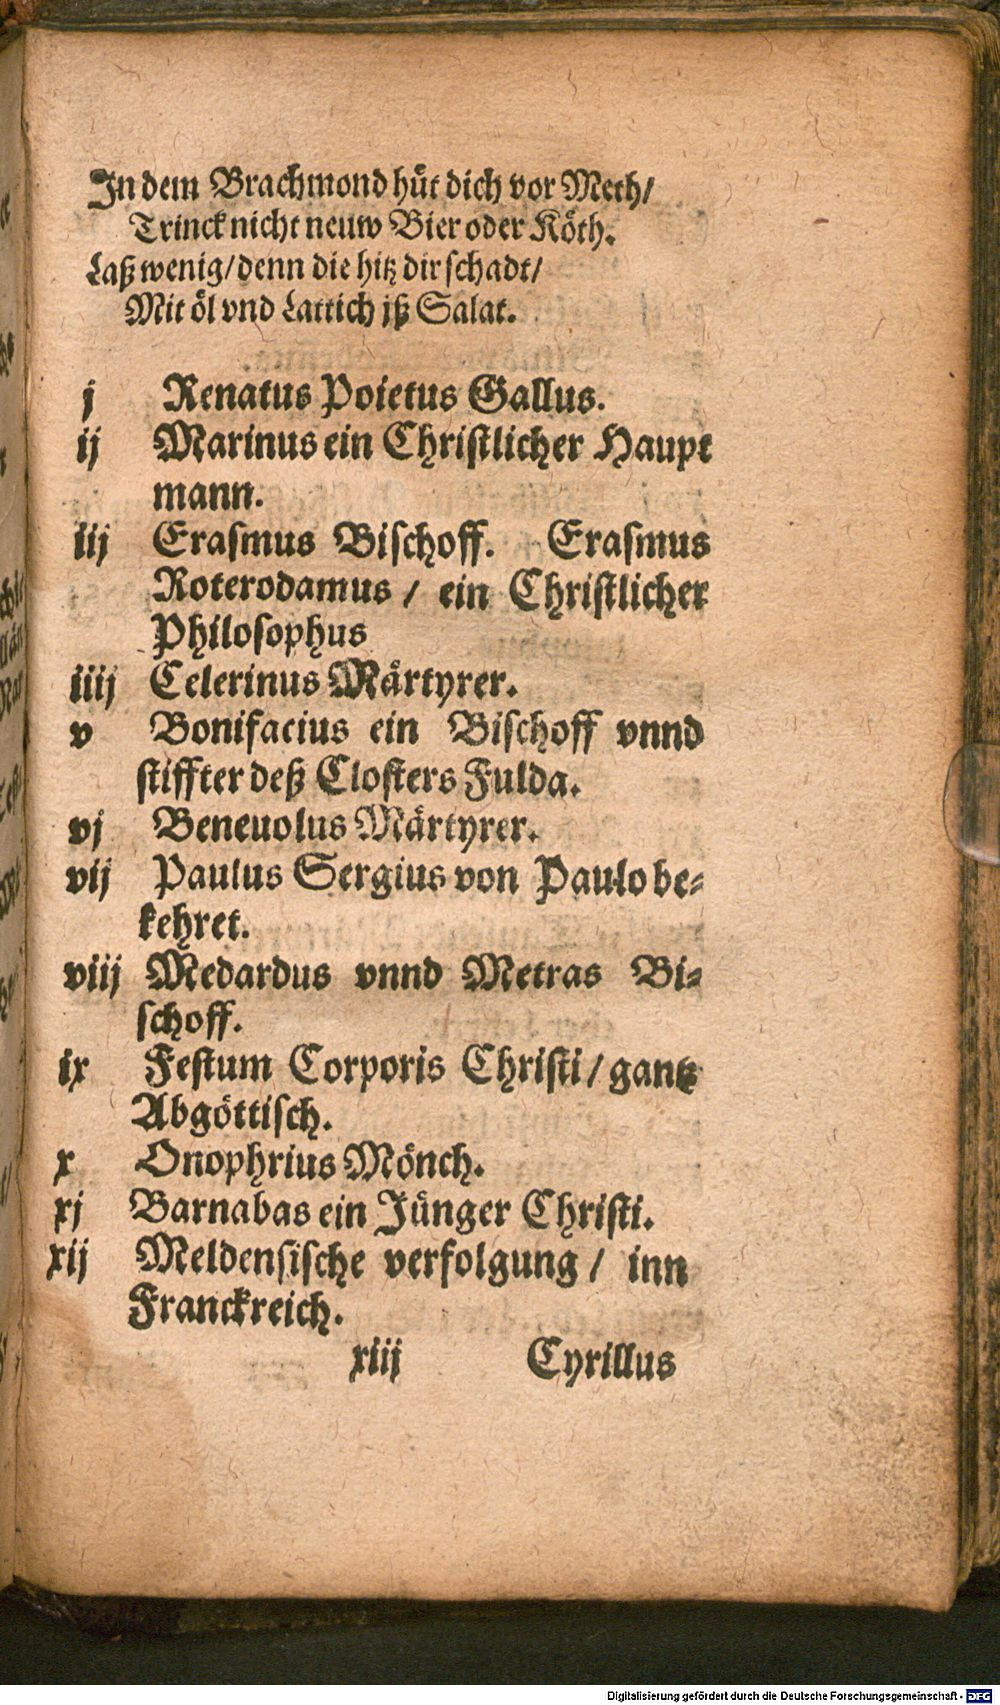 In dem Brachmond hüt dich vor Meth/
Trinck nicht neuw Bier oder Köth.
Laß wenig/denn die hitz dir schadt/
Mit öl vnd Lattich jß Salat.
j Renatus Poietus Gallus.
ij Marinus ein Christlicher Haupt
mann.
iij Erasmus Bischoff. Erasmus
Roterodamus / ein Christlicher
Philosophus
iiij Celerinus Märtyrer.
v Bonifacius ein Bischoff vnnd
stiffter deß Closters Fulda.
vj Beneuolus Märtyrer.
vij Paulus Sergius von Paulo be-
kehret.
viij Medardus vnnd Metras Bi-
schoff.
ix Festum Corporis Christi/gantz
Abgöttisch.
x Onophrius Mönch.
xj Barnabas ein Jünger Christi.
xij Meldensische verfolgung / inn
Franckreich.
xiij Cyrillus
Digitalisierung gefördert durch die Deutsche Forschungsgemeinschaft - DFG